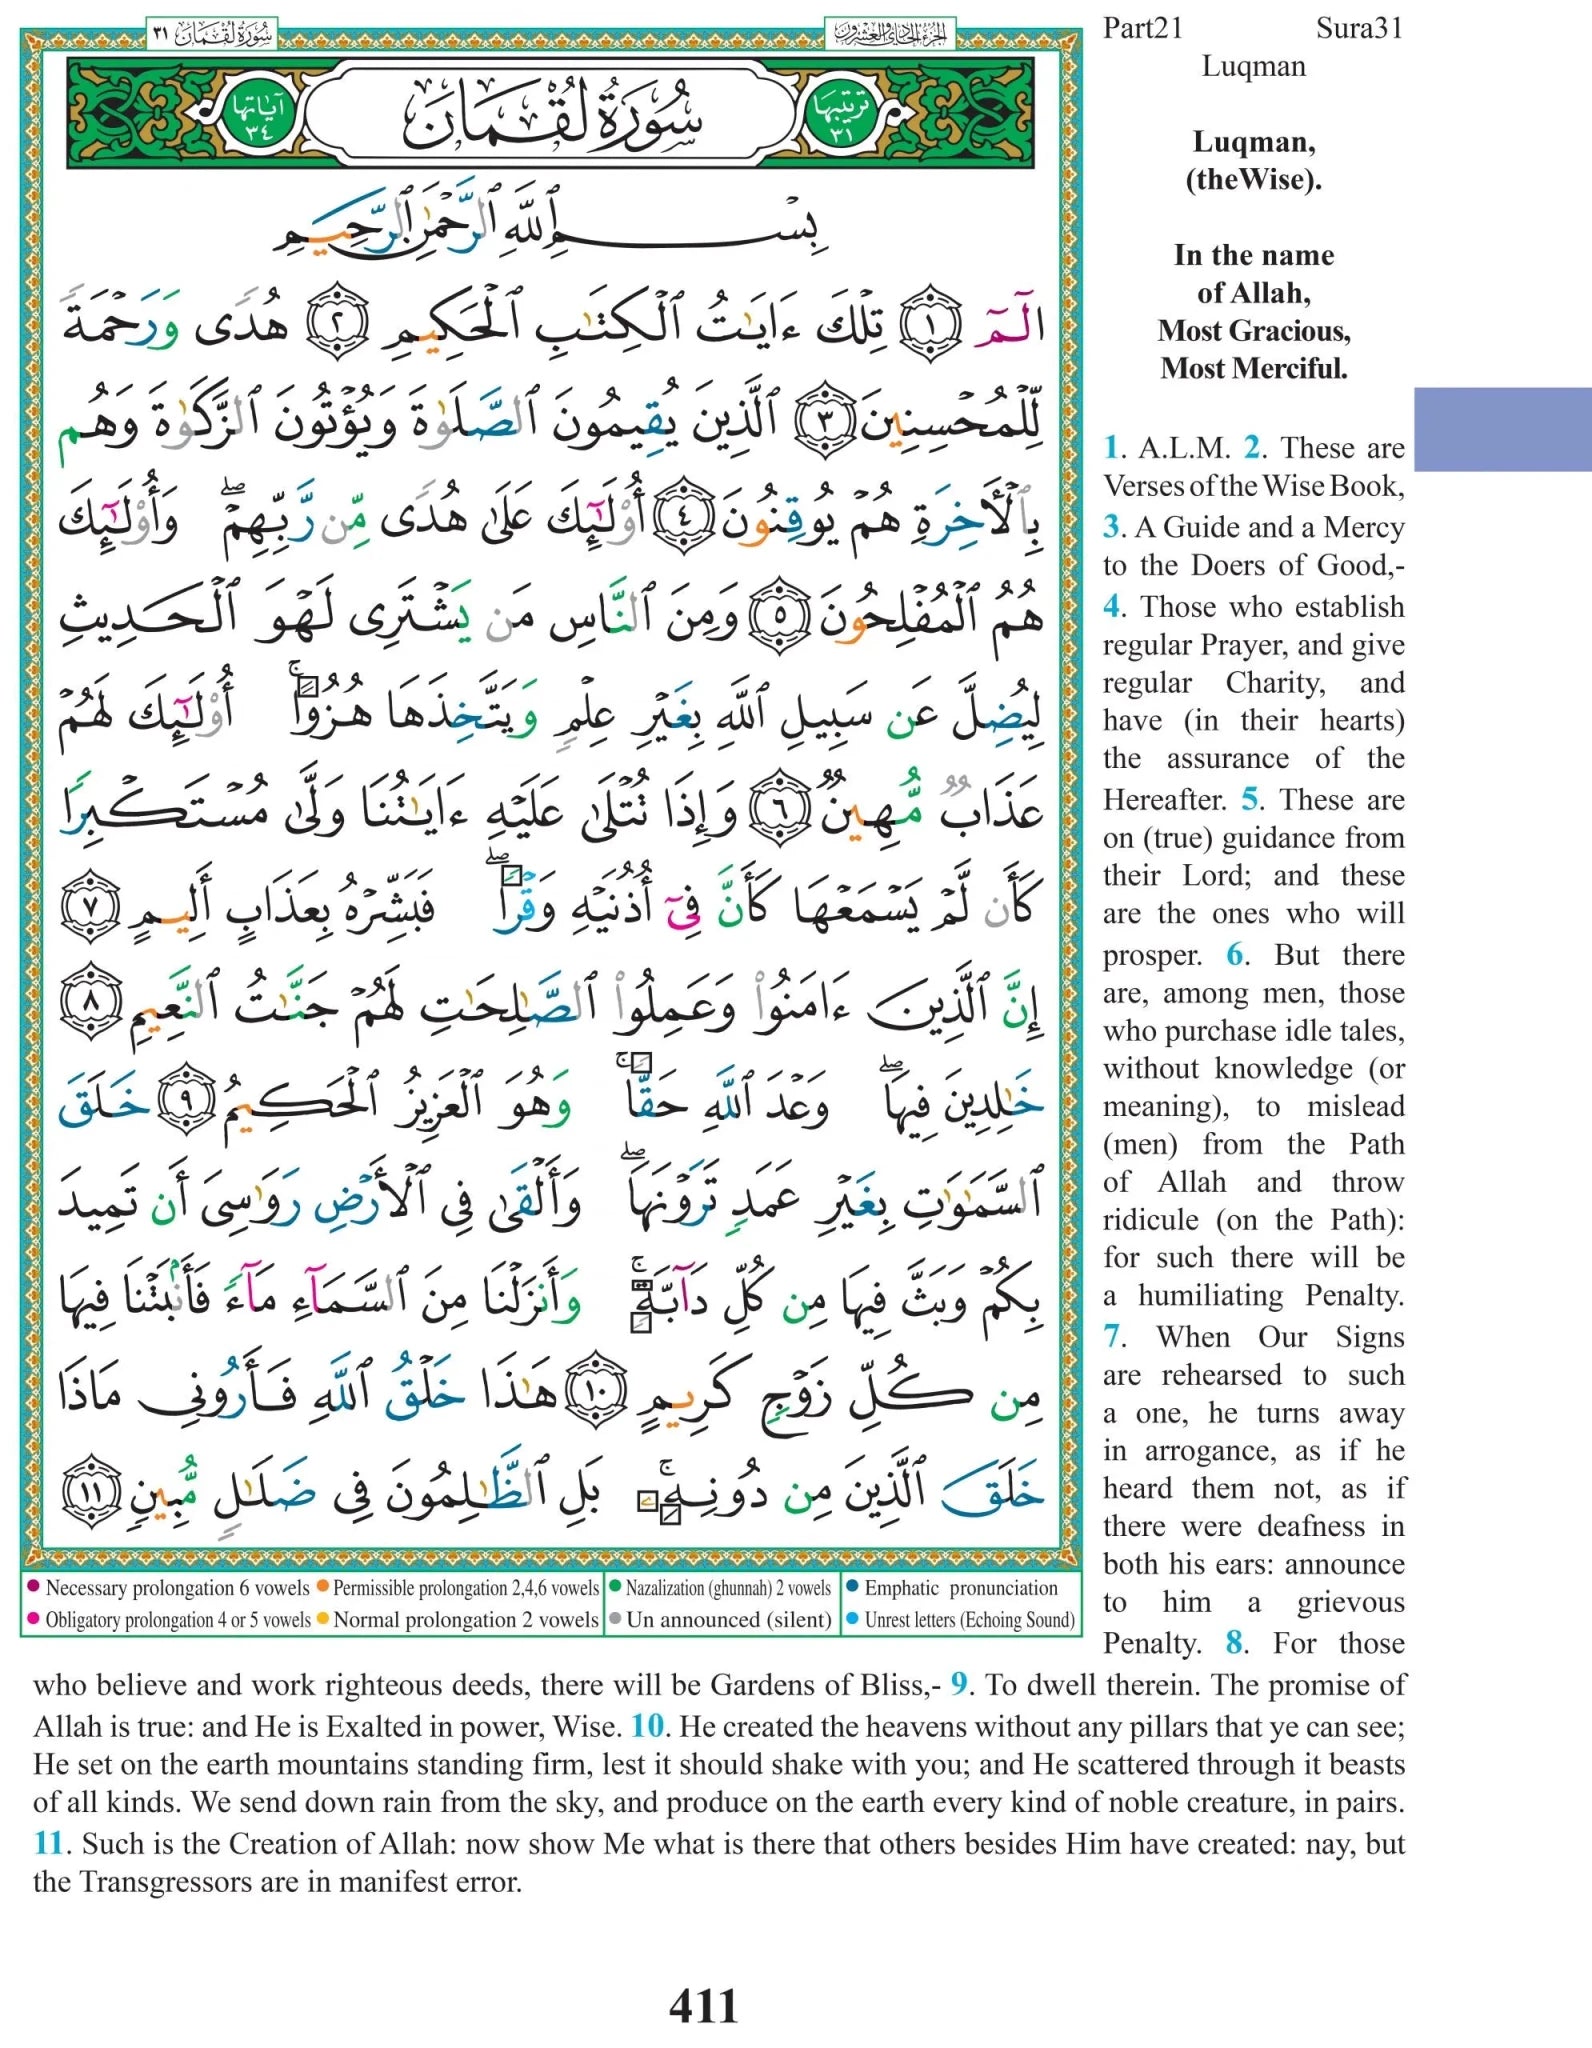 سُورَةُ لُقْمَان ٣١
الجزء الحادي والعشرون
Part21 Sura31
Luqman
ترتيبها
٣١
سُورَةُ لُقْمَان
آياتها
٣٤
بِسْمِ ٱللَّهِ ٱلرَّحْمَٰنِ ٱلرَّحِيمِ
الٓمٓ ١ تِلْكَ ءَايَٰتُ ٱلْكِتَٰبِ ٱلْحَكِيمِ ٢ هُدًى وَرَحْمَةً
لِّلْمُحْسِنِينَ ٣ ٱلَّذِينَ يُقِيمُونَ ٱلصَّلَوٰةَ وَيُؤْتُونَ ٱلزَّكَوٰةَ وَهُم
بِٱلْأَخِرَةِ هُمْ يُوقِنُونَ ٤ أُو۟لَٰٓئِكَ عَلَىٰ هُدًى مِّن رَّبِّهِمْ ۖ وَأُو۟لَٰٓئِكَ
هُمُ ٱلْمُفْلِحُونَ ٥ وَمِنَ ٱلنَّاسِ مَن يَشْتَرِى لَهْوَ ٱلْحَدِيثِ
لِيُضِلَّ عَن سَبِيلِ ٱللَّهِ بِغَيْرِ عِلْمٍ وَيَتَّخِذَهَا هُزُوًا ۚ أُو۟لَٰٓئِكَ لَهُمْ
عَذَابٌ مُّهِينٌ ٦ وَإِذَا تُتْلَىٰ عَلَيْهِ ءَايَٰتُنَا وَلَّىٰ مُسْتَكْبِرًا
كَأَن لَّمْ يَسْمَعْهَا كَأَنَّ فِىٓ أُذُنَيْهِ وَقْرًا ۖ فَبَشِّرْهُ بِعَذَابٍ أَلِيمٍ ٧
إِنَّ ٱلَّذِينَ ءَامَنُوا۟ وَعَمِلُوا۟ ٱلصَّٰلِحَٰتِ لَهُمْ جَنَّٰتُ ٱلنَّعِيمِ ٨
خَٰلِدِينَ فِيهَا ۖ وَعْدَ ٱللَّهِ حَقًّا ۚ وَهُوَ ٱلْعَزِيزُ ٱلْحَكِيمُ ٩ خَلَقَ
ٱلسَّمَٰوَٰتِ بِغَيْرِ عَمَدٍ تَرَوْنَهَا ۖ وَأَلْقَىٰ فِى ٱلْأَرْضِ رَوَٰسِىَ أَن تَمِيدَ
بِكُمْ وَبَثَّ فِيهَا مِن كُلِّ دَآبَّةٍ ۚ وَأَنزَلْنَا مِنَ ٱلسَّمَآءِ مَآءً فَأَنۢبَتْنَا فِيهَا
مِن كُلِّ زَوْجٍ كَرِيمٍ ١٠ هَٰذَا خَلْقُ ٱللَّهِ فَأَرُونِى مَاذَا
خَلَقَ ٱلَّذِينَ مِن دُونِهِۦ ۚ بَلِ ٱلظَّٰلِمُونَ فِى ضَلَٰلٍ مُّبِينٍ ١١
Necessary prolongation 6 vowels Permissible prolongation 2,4,6 vowels Nazalization (ghunnah) 2 vowels Emphatic pronunciation
Obligatory prolongation 4 or 5 vowels Normal prolongation 2 vowels Un announced (silent) Unrest letters (Echoing Sound)
Luqman,
(theWise).
In the name
of Allah,
Most Gracious,
Most Merciful.
1. A.L.M. 2. These are
Verses of the Wise Book,
3. A Guide and a Mercy
to the Doers of Good,-
4. Those who establish
regular Prayer, and give
regular Charity, and
have (in their hearts)
the assurance of the
Hereafter. 5. These are
on (true) guidance from
their Lord; and these
are the ones who will
prosper. 6. But there
are, among men, those
who purchase idle tales,
without knowledge (or
meaning), to mislead
(men) from the Path
of Allah and throw
ridicule (on the Path):
for such there will be
a humiliating Penalty.
7. When Our Signs
are rehearsed to such
a one, he turns away
in arrogance, as if he
heard them not, as if
there were deafness in
both his ears: announce
to him a grievous
Penalty. 8. For those
who believe and work righteous deeds, there will be Gardens of Bliss,- 9. To dwell therein. The promise of
Allah is true: and He is Exalted in power, Wise. 10. He created the heavens without any pillars that ye can see;
He set on the earth mountains standing firm, lest it should shake with you; and He scattered through it beasts
of all kinds. We send down rain from the sky, and produce on the earth every kind of noble creature, in pairs.
11. Such is the Creation of Allah: now show Me what is there that others besides Him have created: nay, but
the Transgressors are in manifest error.
411